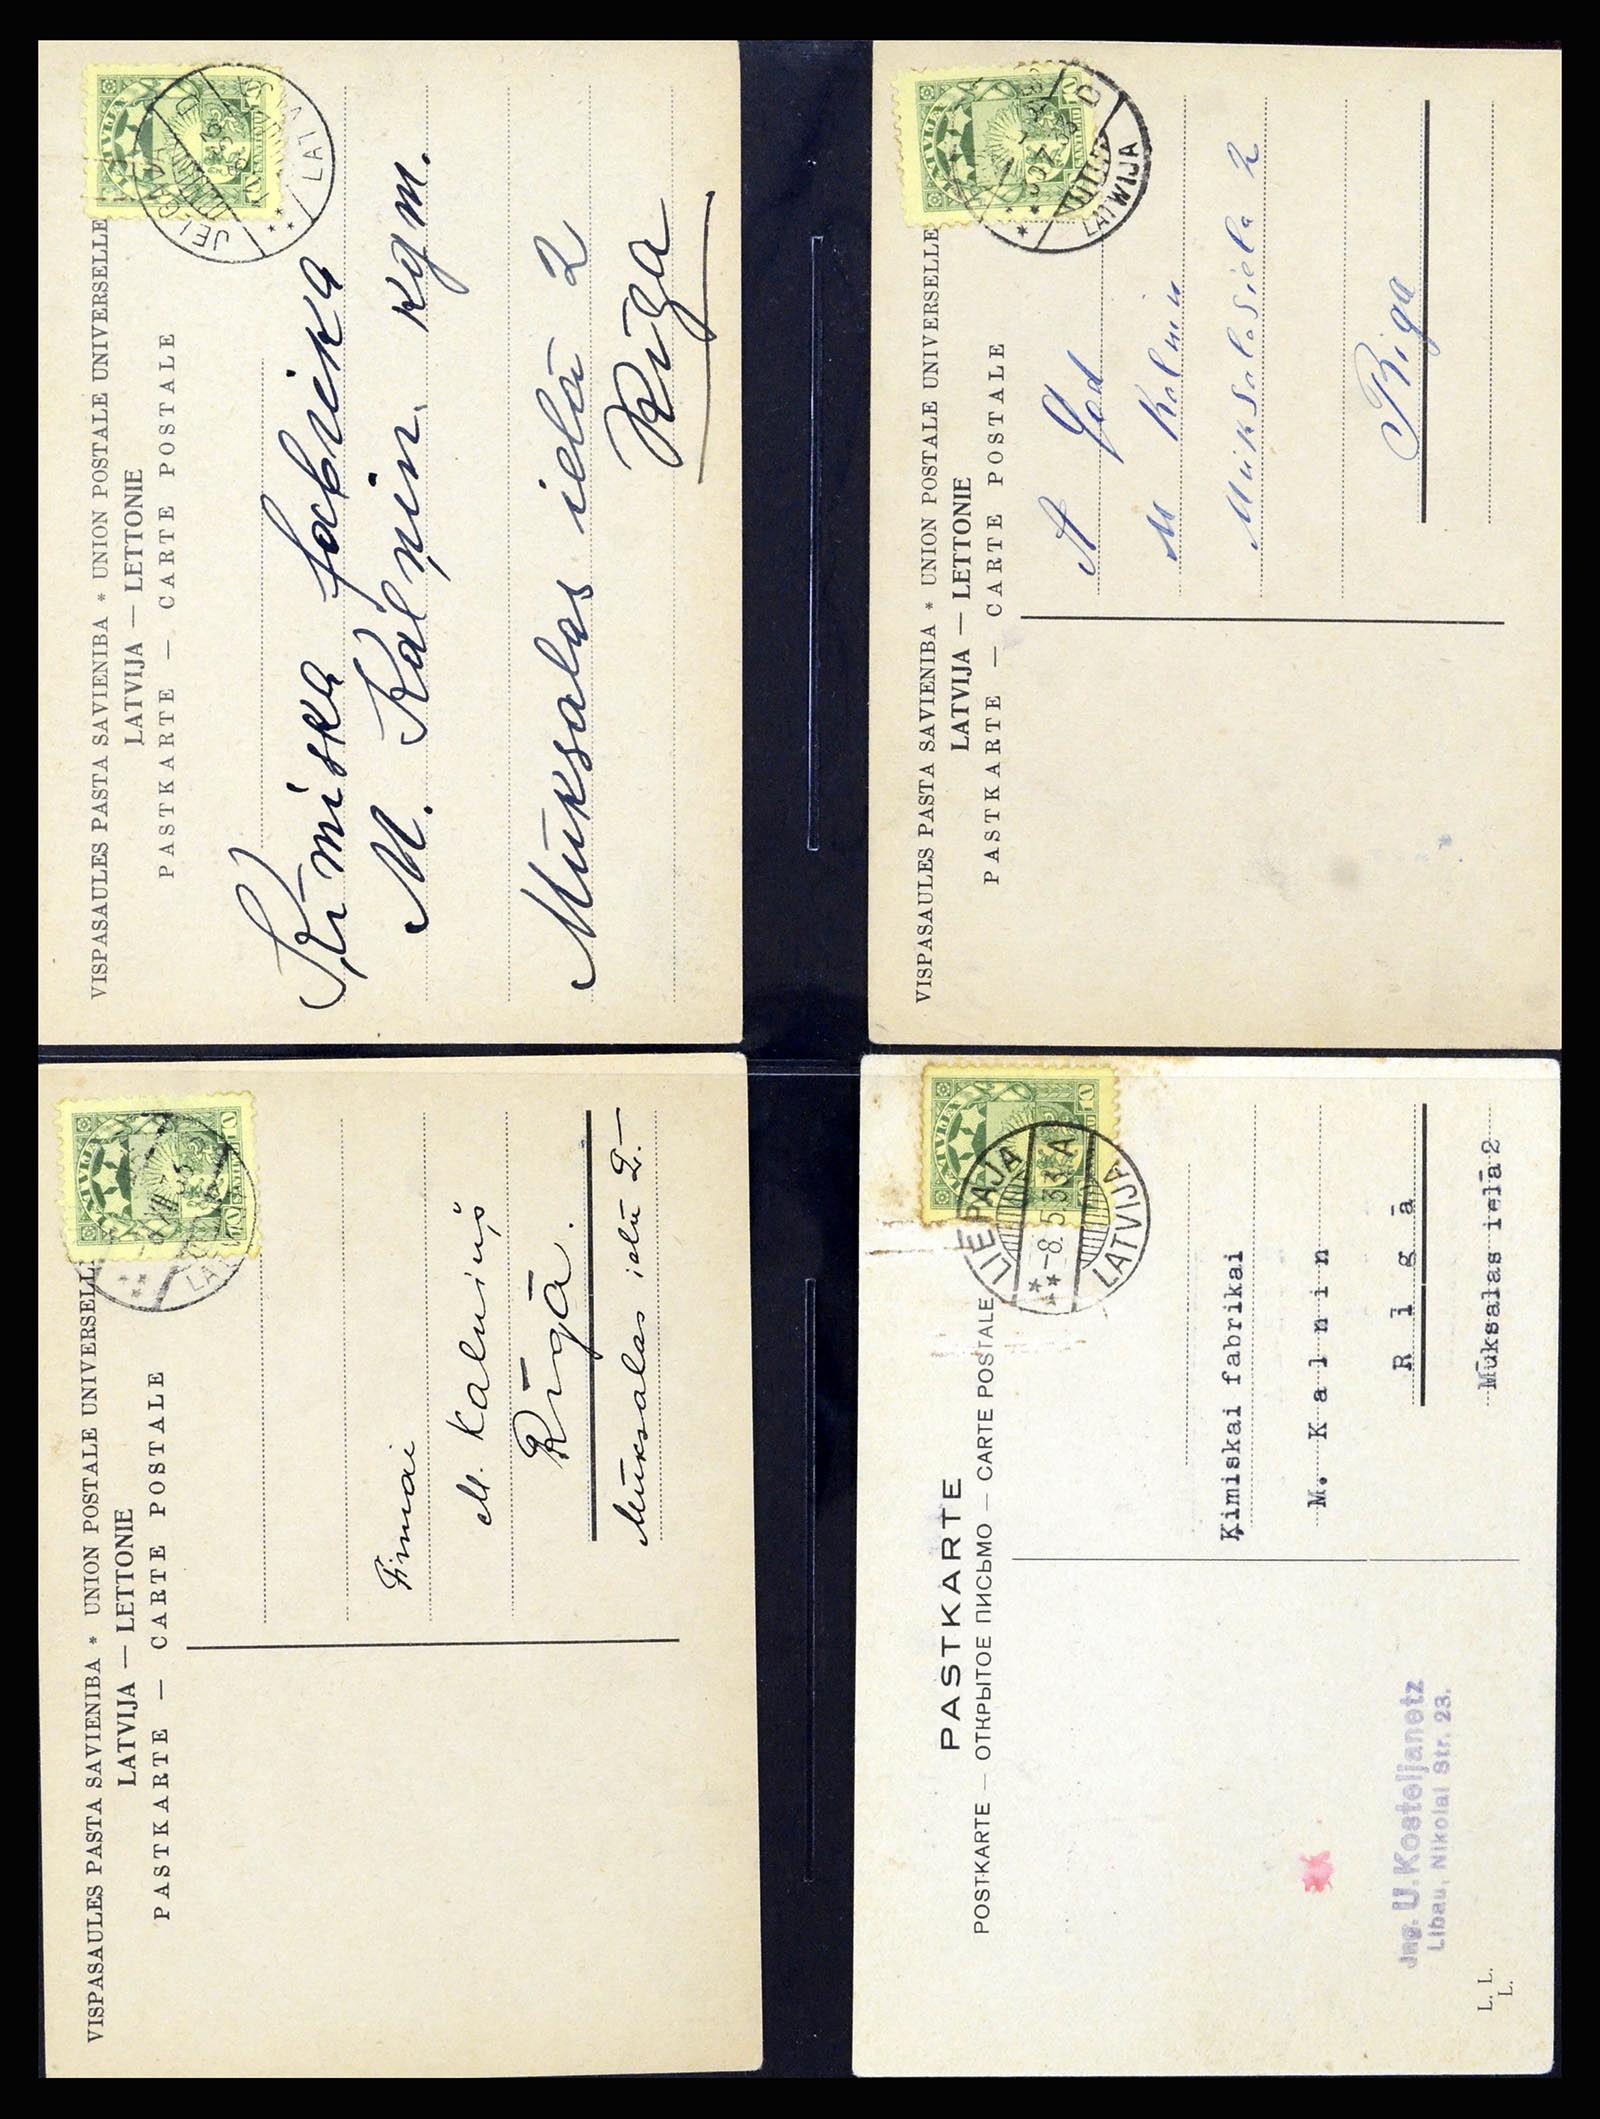 VISPASAULES PASTA SAVIENIBA * UNION POSTALE UNIVERSELLE
LATVIJA — LETTONIE
PASTKARTE — CARTE POSTALE
JELGAVA
LATV
Ķīmiska fabrika
M. Kalniņ kgm.
Mūksalas ielā 2
Rīga
VISPASAULES PASTA SAVIENIBA * UNION POSTALE UNIVERSELLE
LATVIJA — LETTONIE
PASTKARTE — CARTE POSTALE
LATWIJA
M Kalnin
Muksalas iela 2
Riga
VISPASAULES PASTA SAVIENIBA * UNION POSTALE UNIVERSELL
LATVIJA — LETTONIE
PASTKARTE — CARTE POSTALE
LATVIJA
10
Firmai
M. Kalniņš
Rīgā.
Mūksalas ielā 2.—
PASTKARTE
POSTKARTE — ОТКРЫТОЕ ПИСЬМО — CARTE POSTALE
LATVIJA
10
LIEPAJA
-8.5 33-A
LATVIJA
Ķimiskai fabrikai
M. Kalnin
Rīgā
Mūksalas ielā 2
Jng. U. Kosteljanetz
Libau, Nikolai Str. 23.
L. L.
L.